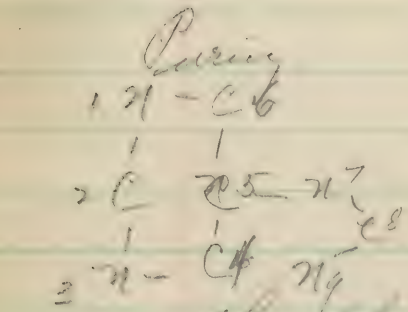 Purin
1 N - C 6
2 C C 5 - N 7
C 8
3 N - C 4 N 9